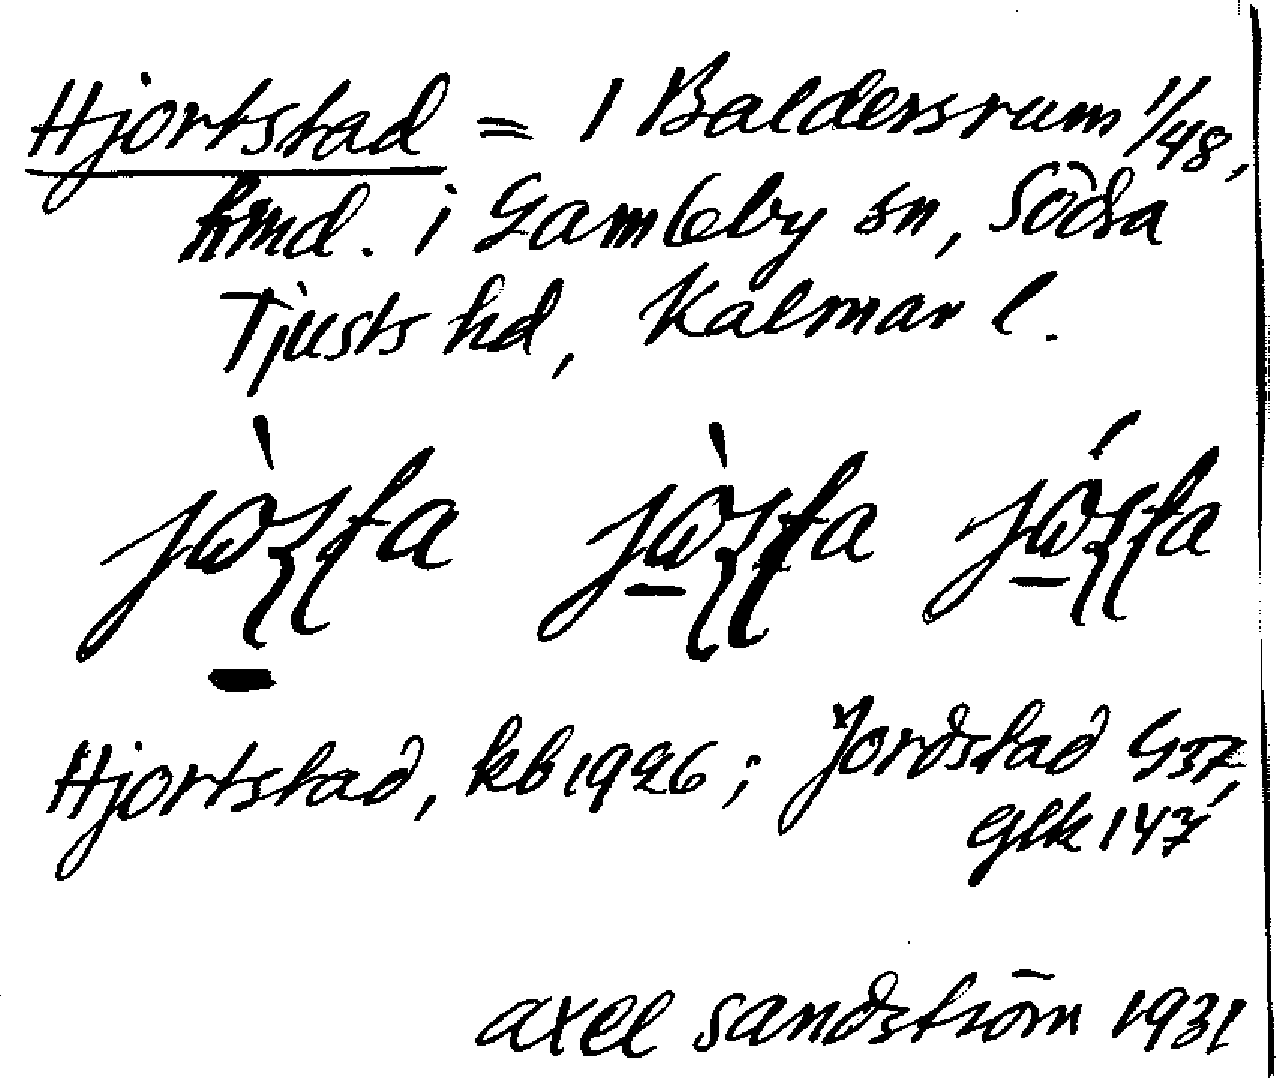 Hjortstad = 1 Baldersrum 1/48,
hmd. i Gamleby sn, Södra
Tjusts hd, Kalmar l.
Hjortstad, kb 1926; Jordstad G37,
glk 147
axel sandström 1931